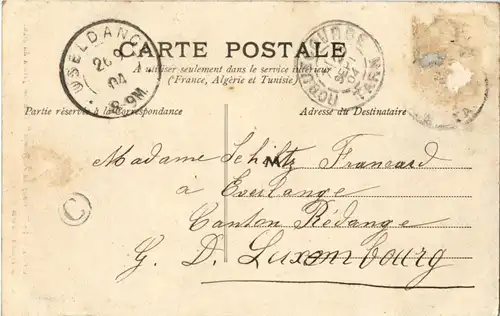 CARTE POSTALE
A utiliser seulement dans le service intérieur
(France, Algérie et Tunisie)
Partie réservée à la correspondance
Adresse du Destinataire
USELDANGE
04
8-9M
TARN
04
C
Madame Schiltz Francard
à Everlange
Canton Rédange
G. D. Luxembourg